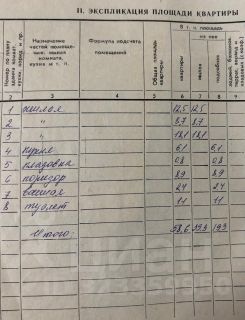 II. ЭКСПЛИКАЦИЯ ПЛОЩАДИ КВАРТИРЫ
Назначение частей помещения: жилая комната, кухня и т. п.
Формула подсчета помещений
Общая площадь квартиры
В т. ч. площадь
квартиры
из нее
жилая
подсобная
2 3 4 5 6 7 8 9
1 жилая 12,5 12,5
2 " 8,7 8,7
3 " 18,1 18,1
4 кухня 6,1 6,1
5 кладовка 0,8 0,8
6 коридор 8,9 8,9
7 ванная 2,4 2,4
8 туалет 1,1 1,1
Итого: 58,6 39,3 19,3